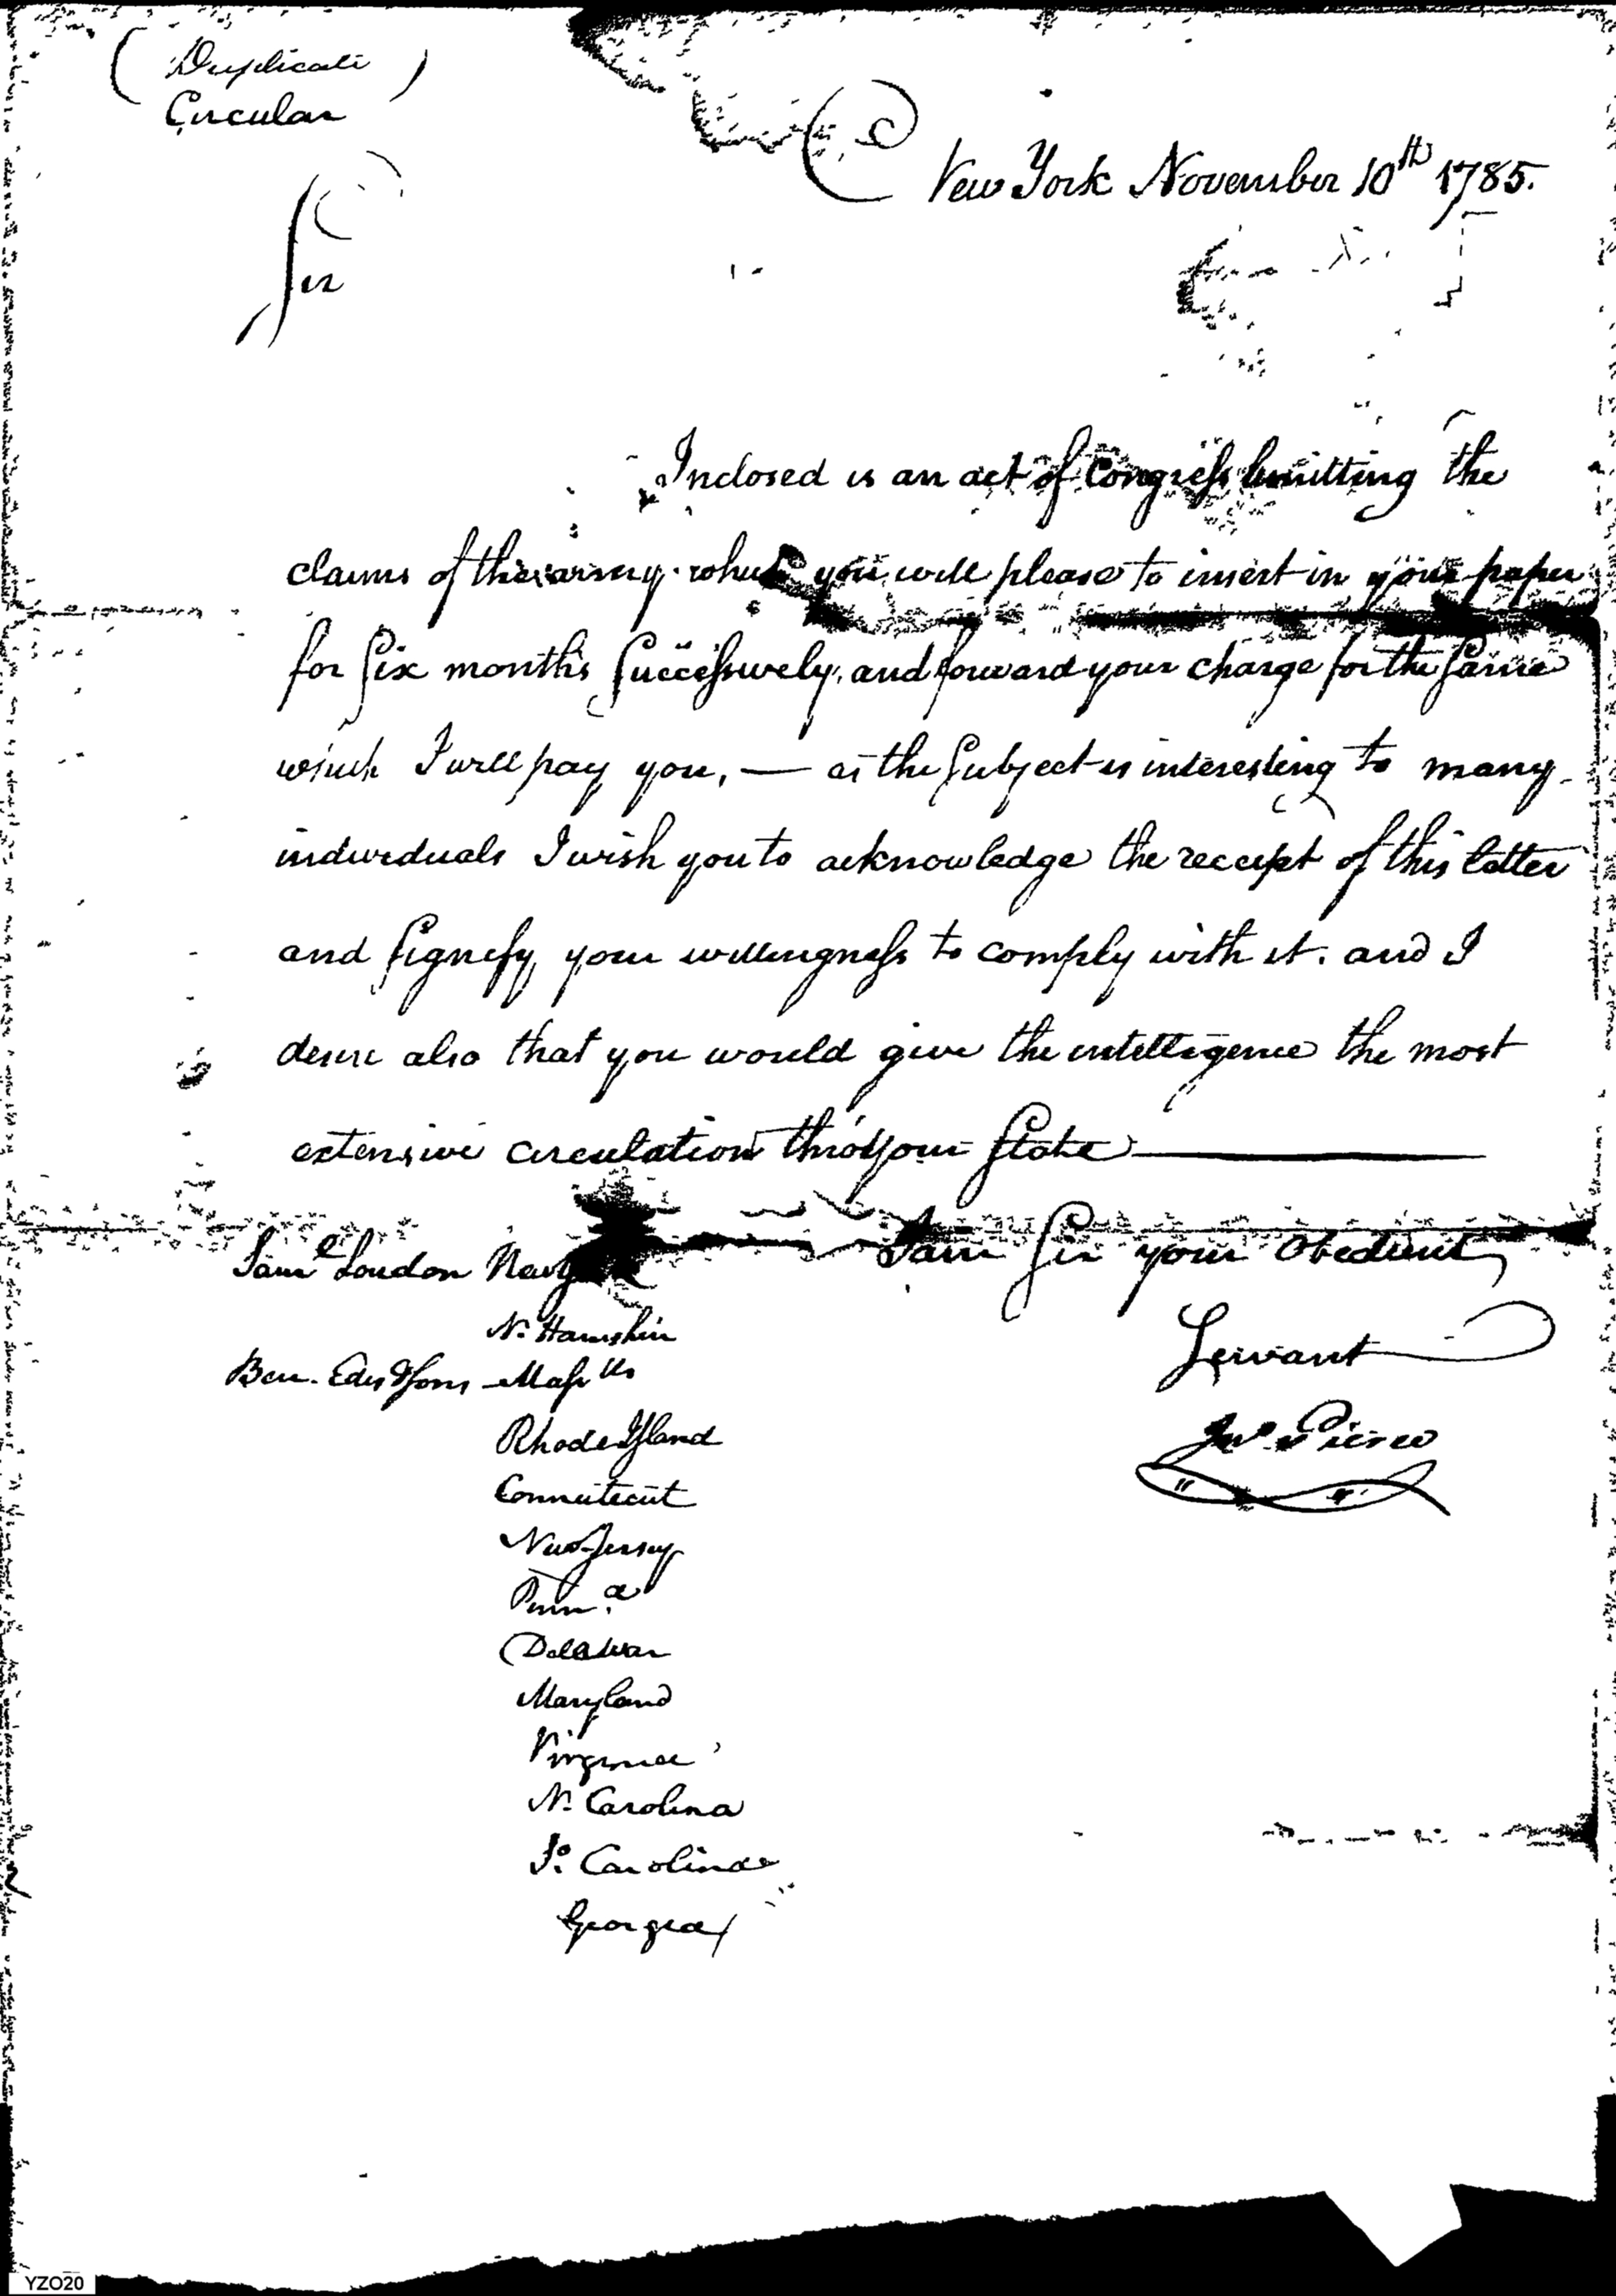 (Duplicate)
Circular
New York November 10th 1785.
Sir
Inclosed is an act of Congress limitting the
claims of the army which you will please to insert in your paper
for Six months Successively, and forward your charge for the Same
which I will pay you, — as the Subject is interesting to many
individuals I wish you to acknowledge the receipt of this letter
and Signify your willingness to comply with it. and I
desire also that you would give the intelligence the most
extensive circulation thro your State
I am Sir your Obedient
Servant
Jno Pierce
Saml Loudon
N. Hamshire
Ben. Edes & Sons Massts
Rhode Island
Connecticut
New Jersey
Penna
Delawar
Maryland
Virginia
N. Carolina
So. Carolina
Georgia
YZO20